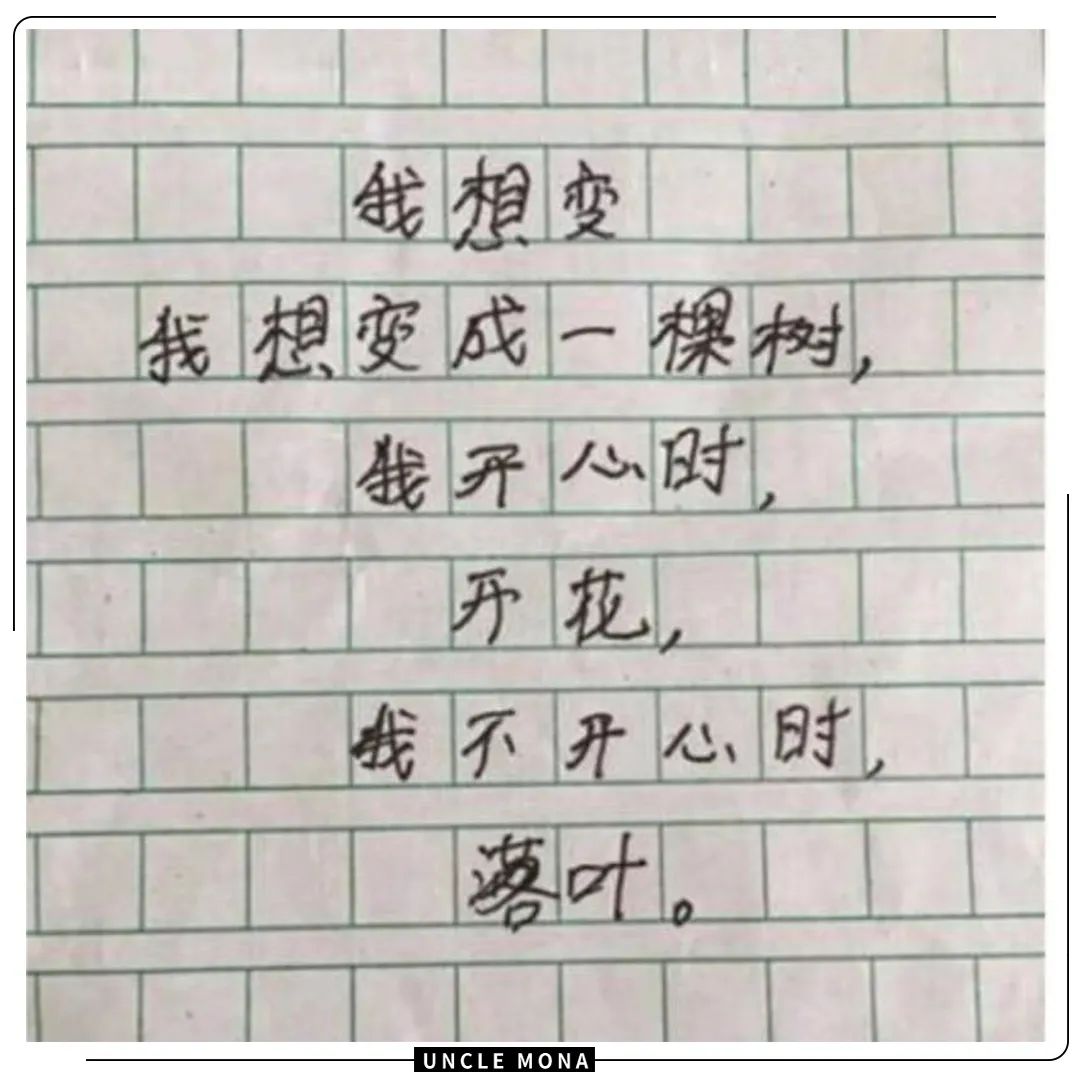 我想变
我想变成一棵树，
我开心时，
开花，
我不开心时，
落叶。
UNCLE MONA